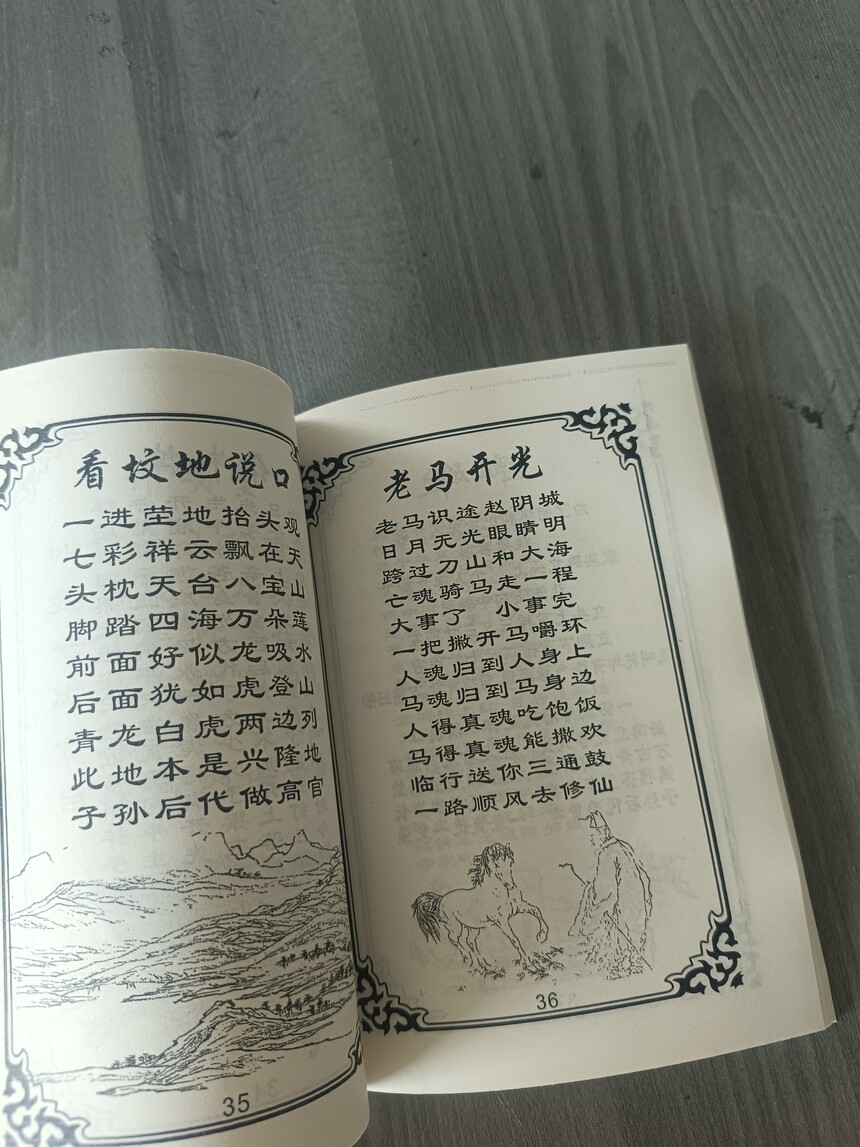 看坟地说口
一进茔地抬头观
七彩祥云飘在天
头枕天台八宝山
脚踏四海万朵莲
前面好似龙吸水
后面犹如虎登山
青龙白虎两边列
此地本是兴隆地
子孙后代做高官
35
老马开光
老马识途赵阴城
日月无光眼睛明
跨过刀山和大海
亡魂骑马走一程
大事了 小事完
一把撇开马嚼环
人魂归到人身上
马魂归到马身边
人得真魂吃饱饭
马得真魂能撒欢
临行送你三通鼓
一路顺风去修仙
36